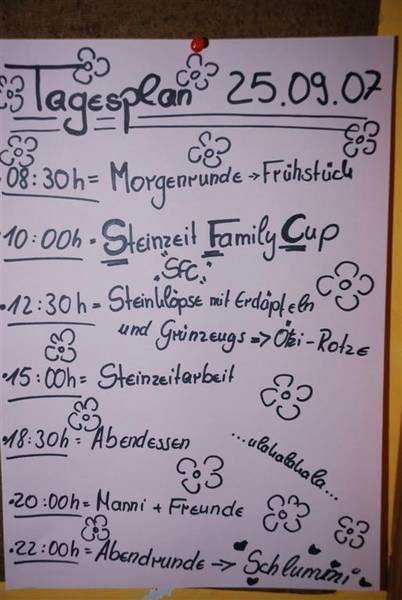 Tagesplan 25.09.07
08:30h = Morgenrunde → Frühstück
10:00h = Steinzeit Family Cup
"SFC"
• 12:30h = Steinklöpse mit Erdäpfeln
und Grünzeugs => Ötzi-Rotze
• 15:00h = Steinzeitarbeit
• 18:30h = Abendessen
• 20:00h = Manni + Freunde
• 22:00h = Abendrunde → Schlummi